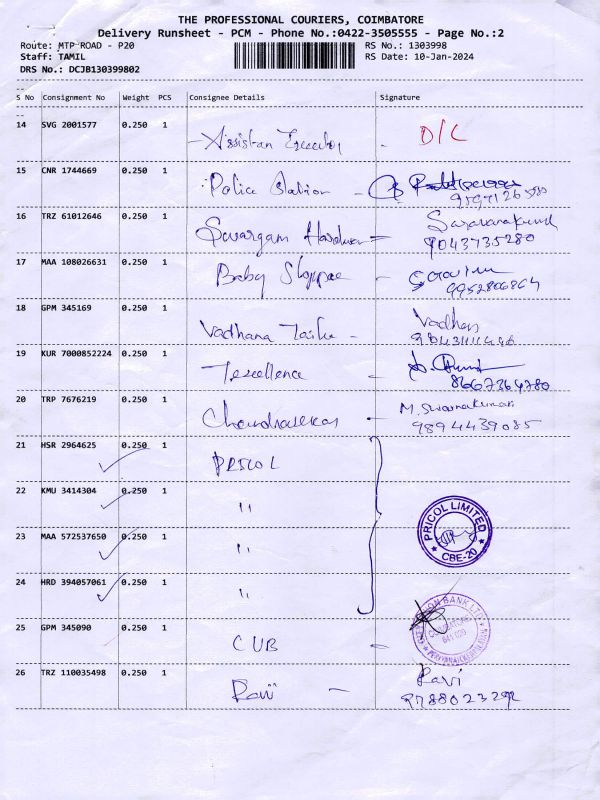 THE PROFESSIONAL COURIERS, COIMBATORE
Delivery Runsheet - PCM - Phone No.:0422-3505555 - Page No.:2
Route: MTP ROAD - P20
RS No.: 1303998
Staff: TAMIL
RS Date: 10-Jan-2024
DRS No.: DCJB130399802
S No Consignment No Weight PCS Consignee Details Signature
14 SVG 2001577 0.250 1
D/C
15 CNR 1744669 0.250 1
Police Station -
16 TRZ 61012646 0.250 1
9043735280
17 MAA 108026631 0.250 1
Baby Shoppee -
9952806864
18 GPM 345169 0.250 1
Vadhana -
19 KUR 7000852224 0.250 1
Texcellence -
8667364780
20 TRP 7676219 0.250 1
Chandrasekar -
M. Swarnakumari
9894439085
21 HSR 2964625 0.250 1
PRICOL
22 KMU 3414304 0.250 1
"
23 MAA 572537650 0.250 1
"
PRICOL LIMITED
CBE-20
24 HRD 394057061 0.250 1
"
25 GPM 345090 0.250 1
CUB
26 TRZ 110035498 0.250 1
Ravi -
Ravi
9788023292